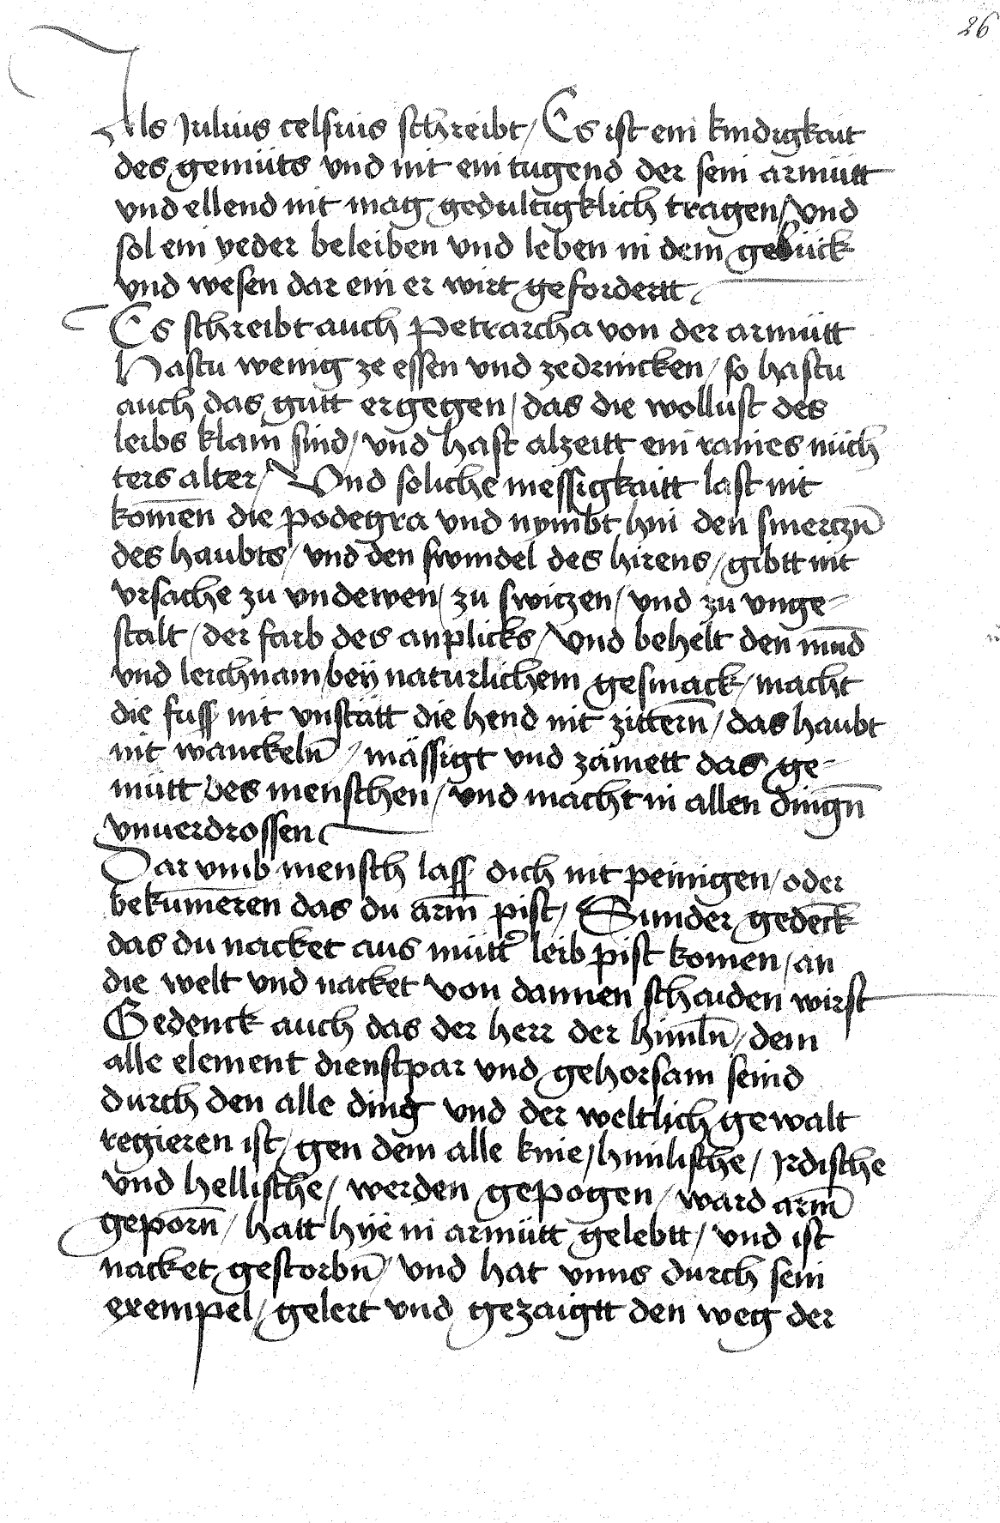 26
Als Julius celsus schreibt / Es ist ein kindigkait
des gemüts vnd nit ein tugend der sein armütt
vnd ellend nit mag gedultigklich tragen / Vnd
sol ein yeder beleiben vnd leben in dem gelück
vnd wesen dar ein er wirt gefordertt
Es schreibt auch Petrarcha von der armütt
Hastu wenig ze essen vnd ze drincken / so hastu
auch das gutt ergegen / das die wollust des
leibs klain sind / vnd hast alzeitt ein raines nüch
ters alter / Vnd soliche messigkaitt last nit
komen die podegra vnd nymbt hin den smerczn̄
des haubts / vnd den swindel des hirens / gibtt nit
vrsache zu vndewen / zu switzen / vnd zu vnge-
stalt / der farb des anplicks / Vnd behelt den mūd
vnd leichnam bey naturlichem gesmack / macht
die fuss nit vnstätt die hend nit zittern̄ / das haubt
nit wanckeln̄ / mässigt vnd zämett das ge-
mütt des menschen / vnd macht in allen dingn̄
vnuerdrossen
Dar vmb mensch lass dich nit peinigen / oder
bekūmeren das du arm̄ pist / Sunder gedenck
das du nacket aus mütt᷑ leib pist komen / an
die welt vnd nacket von dannen schaiden wirst
Gedenck auch das der herr der himln̄ / dem
alle element dienstpar vnd gehorsam seind
durch den alle ding vnd der weltlich gewalt
regieren ist / gen dem alle knie / himlische / Irdische
vnd hellische / werden gepogen / ward arm̄
geporn̄ / hatt hye in armütt gelebtt / vnd ist
nacket gestorbn̄ / vnd hat vnns durch sein
exempel / gelert vnd gezaigtt den weg der